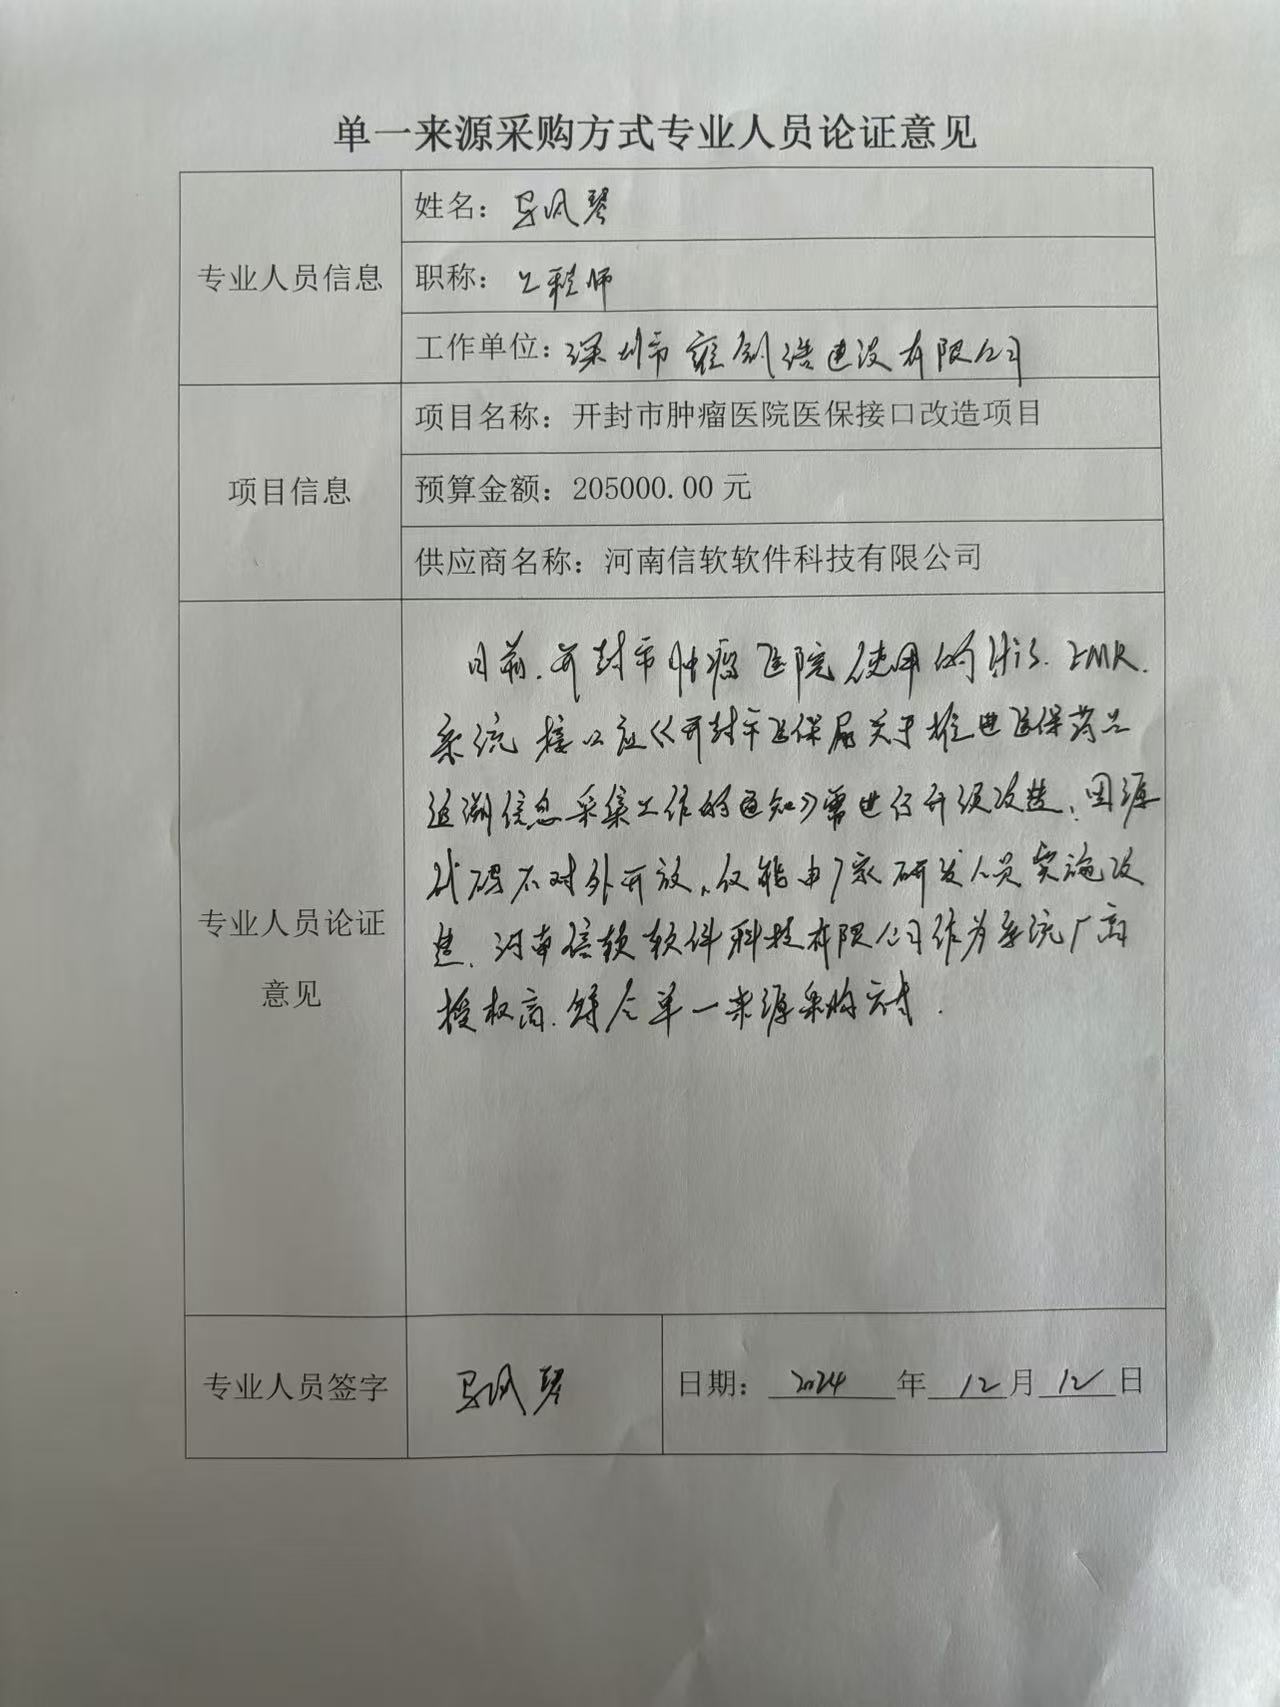 单一来源采购方式专业人员论证意见
专业人员信息
姓名：马凤琴
职称：工程师
工作单位：深圳市雍创浩建设有限公司
项目信息
项目名称：开封市肿瘤医院医保接口改造项目
预算金额：205000.00 元
供应商名称：河南信软软件科技有限公司
专业人员论证
意见
目前、开封市肿瘤医院使用的His、EMR、
系统接口应《开封市医保局关于推进医保药品
追溯信息采集工作的通知》需进行升级改造，因源
代码不对外开放，仅能由厂家研发人员实施改
造、河南信软软件科技有限公司作为系统厂商
授权商、符合单一来源采购方式.
专业人员签字
马凤琴
日期：2024年12月12日